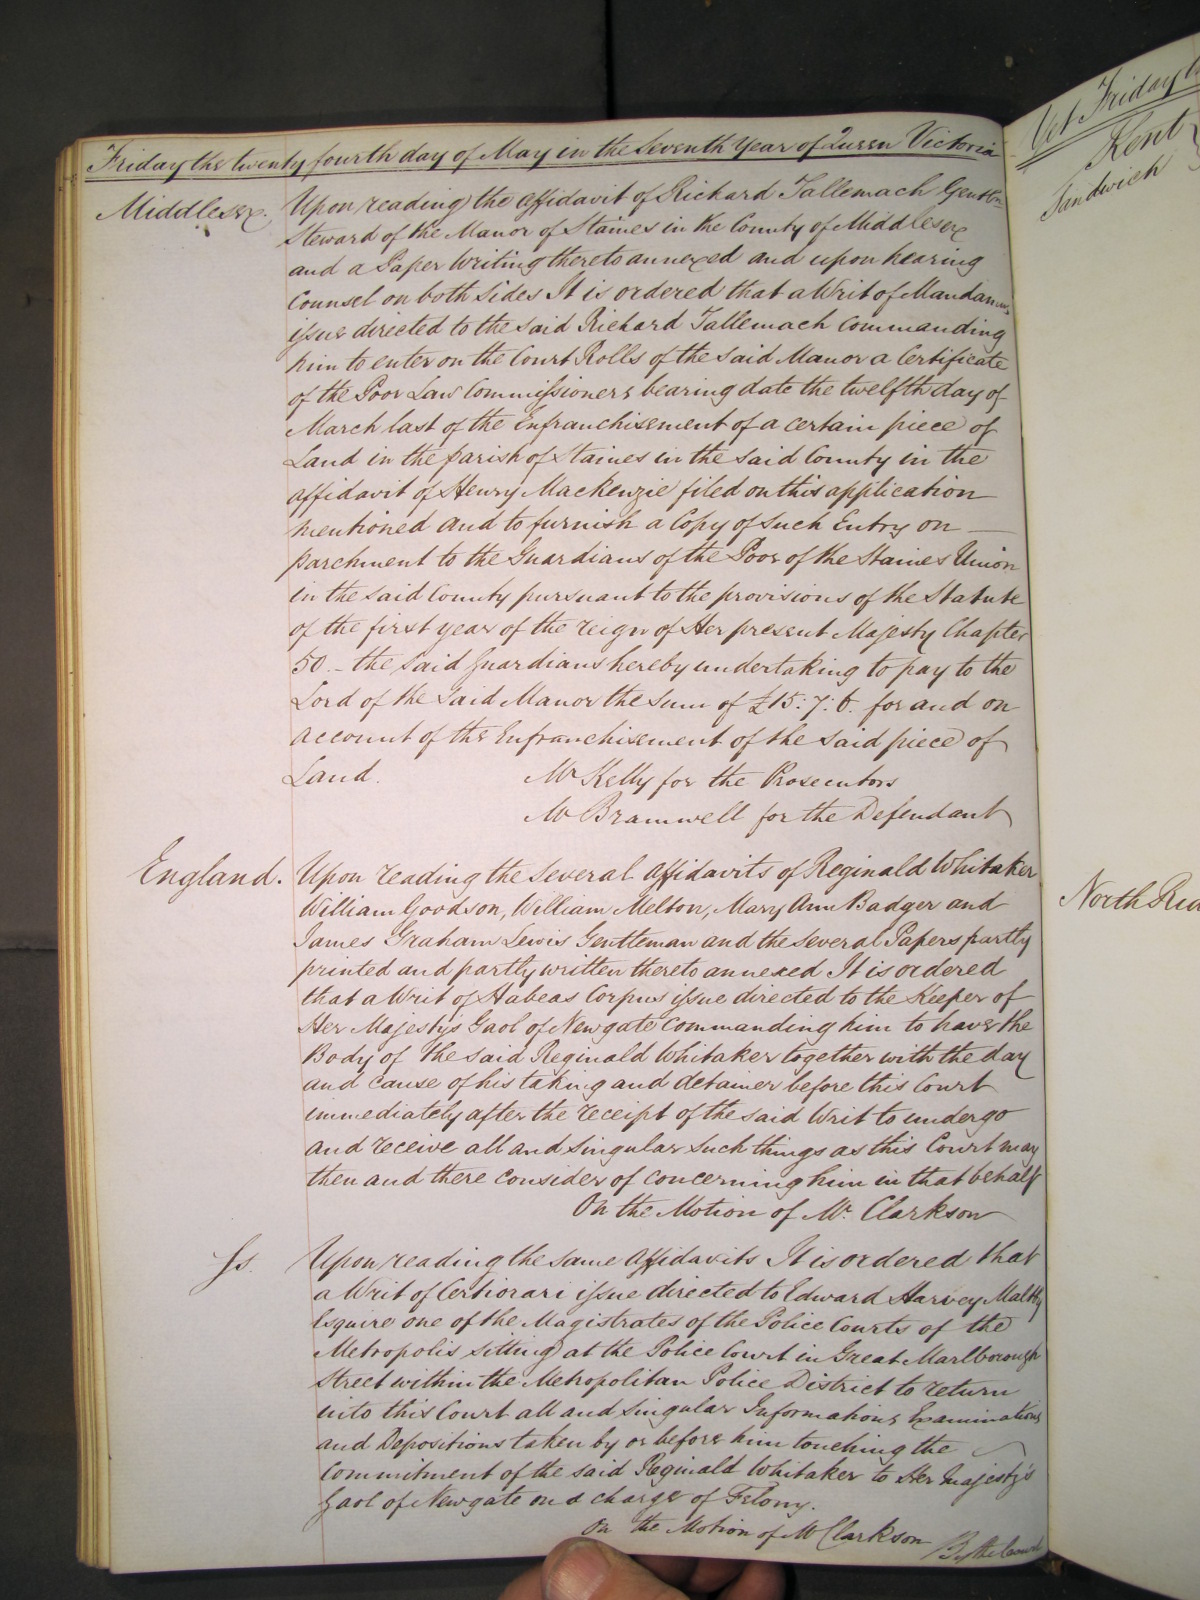 Friday the twenty fourth day of May in the Seventh Year of Queen Victoria
Middlesex.
Upon reading the affidavit of Richard Tallemach Gentln
Steward of the Manor of Staines in the County of Middlesex
and a Paper Writing thereto annexed and upon hearing
Counsel on both sides It is ordered that a Writ of Mandamus
issue directed to the said Richard Tallemach Commanding
him to enter on the Court Rolls of the said Manor a Certificate
of the Poor Law Commissioners bearing date the twelfth day of
March last of the Enfranchisement of a certain piece of
Land in the parish of Staines in the said County in the
affidavit of Henry Mackenzie filed on this application
mentioned and to furnish a Copy of such Entry on
parchment to the Guardians of the Poor of the Staines Union
in the said County pursuant to the provisions of the Statute
of the first year of the reign of Her present Majesty Chapter
50 - the said Guardians hereby undertaking to pay to the
Lord of the said Manor the Sum of £15: 7: 6. for and on
account of the Enfranchisement of the said piece of
Land.
Mr Kelly for the Prosecutors
Mr Bramwell for the Defendant
England.
Upon reading the several affidavits of Reginald Whitaker
William Goodson, William Melton, Mary Ann Badger and
James Graham Lewis Gentleman and the several Papers partly
printed and partly written thereto annexed It is ordered
that a Writ of Habeas Corpus issue directed to the Keeper of
Her Majesty's Gaol of Newgate Commanding him to have the
Body of the said Reginald Whitaker together with the day
and cause of his taking and detainer before this Court
immediately after the receipt of the said Writ to undergo
and receive all and singular such things as this Court may
then and there consider of concerning him in that behalf
On the Motion of Mr. Clarkson
Ss.
Upon reading the same Affidavits It is ordered that
a Writ of Certiorari issue directed to Edward Harvey Maltby
Esquire one of the Magistrates of the Police Courts of the
Metropolis sitting at the Police Court in Great Marlborough
Street within the Metropolitan Police District to return
into this Court all and singular Informations Examinations
and Depositions taken by or before him touching the
Commitment of the said Reginald Whitaker to Her Majesty's
Gaol of Newgate on a charge of Felony.
On the Motion of Mr Clarkson
By the Court
Kent
Sandwich